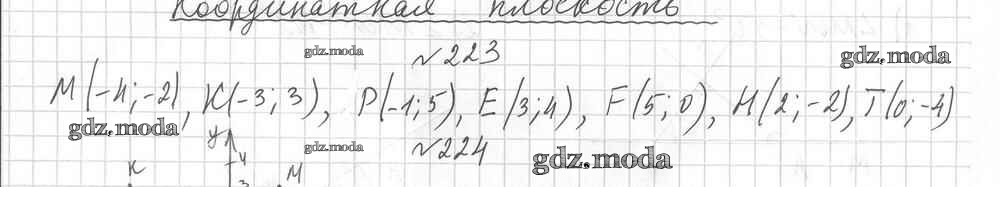 Координатная плоскость
gdz.moda №223 gdz.moda
M(-4; -2), K(-3; 3), P(-1; 5), E(3; 4), F(5; 0), H(2; -2), T(0; -4)
gdz.moda
y gdz.moda №224 gdz.moda
4
K M
3